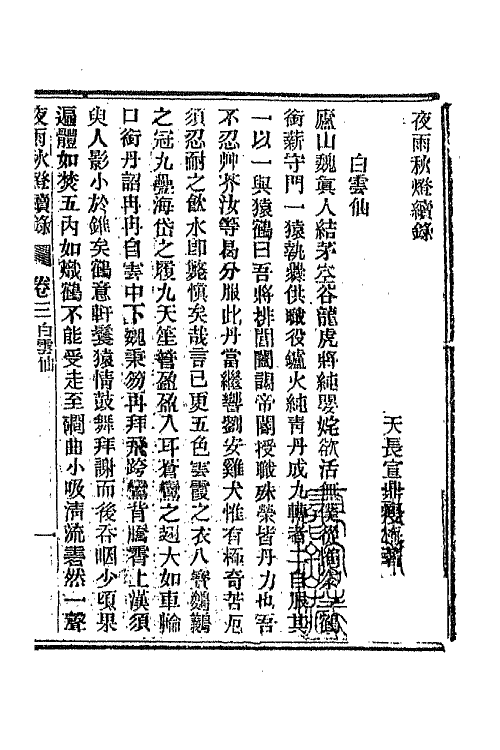 夜雨秋燈續錄
天長宣鼎瘦梅著
白雲仙
廬山魏眞人結茅空谷龍虎將純嬰姹欲活無僕從隨一鶴
銜薪守門一猿執爨供職役鑪火純靑丹成九轉者二自服其
一以一與猿鶴曰吾將排閶闔謁帝閽授職殊榮皆丹力也吾
不忍艸芥汝等曷分服此丹當繼響劉安雞犬惟有極奇苦厄
須忍耐之飮水卽斃愼矣哉言已更五色雲霞之衣八寶鷫鸘
之冠九疊海岱之履九天笙簧盈盈入耳蒼鸞之翅大如車輪
口銜丹詔冉冉自雲中下魏秉笏再拜飛跨鸞背騰霄上漢須
臾人影小於錐矣鶴意軒鬟猿情鼓舞拜謝而後吞咽少頃果
遍體如焚五內如熾鶴不能受走至澗曲小吸淸流砉然一聲
夜雨秋燈續錄 卷三 白雲仙 一